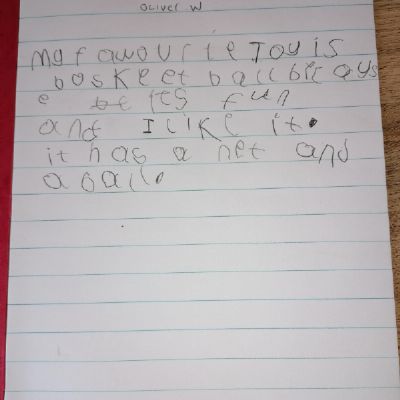 Oliver W
my favourite Toy is
boskeet ball bic ays
e its fun
and I like it.
it has a net and
a ball.